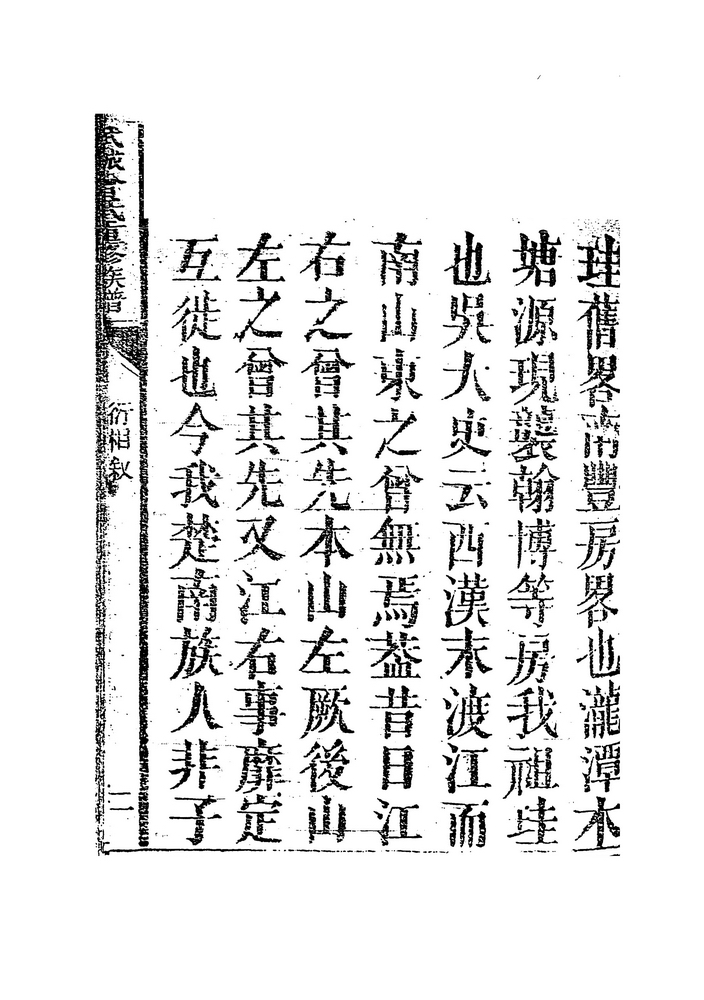 珪舊畧南豐房畧也瀧潭木
塘源現襲翰博等房我祖珪
也吳大史云西漢末渡江而
南山東之曾無焉葢昔日江
右之曾其先本山左厥後山
左之曾其先又江右事靡定
互徙也今我楚南族人非子
氏重修族譜
衍相敘
二